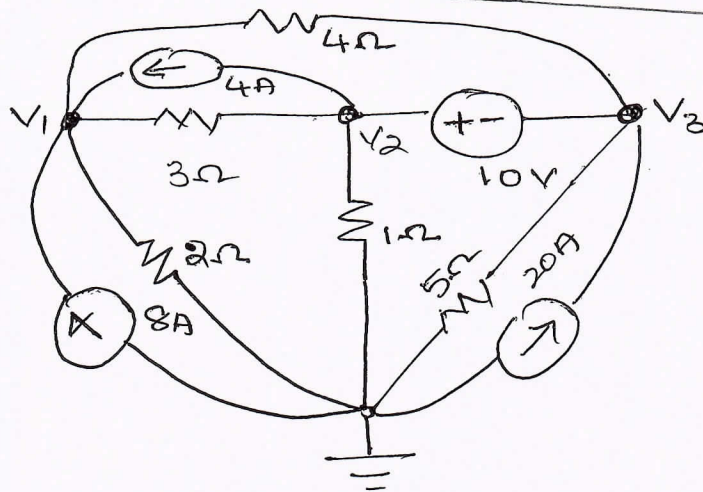 4Ω
4A
V1
V2
V3
+-
3Ω
10V
2Ω
1Ω
5Ω
20A
8A